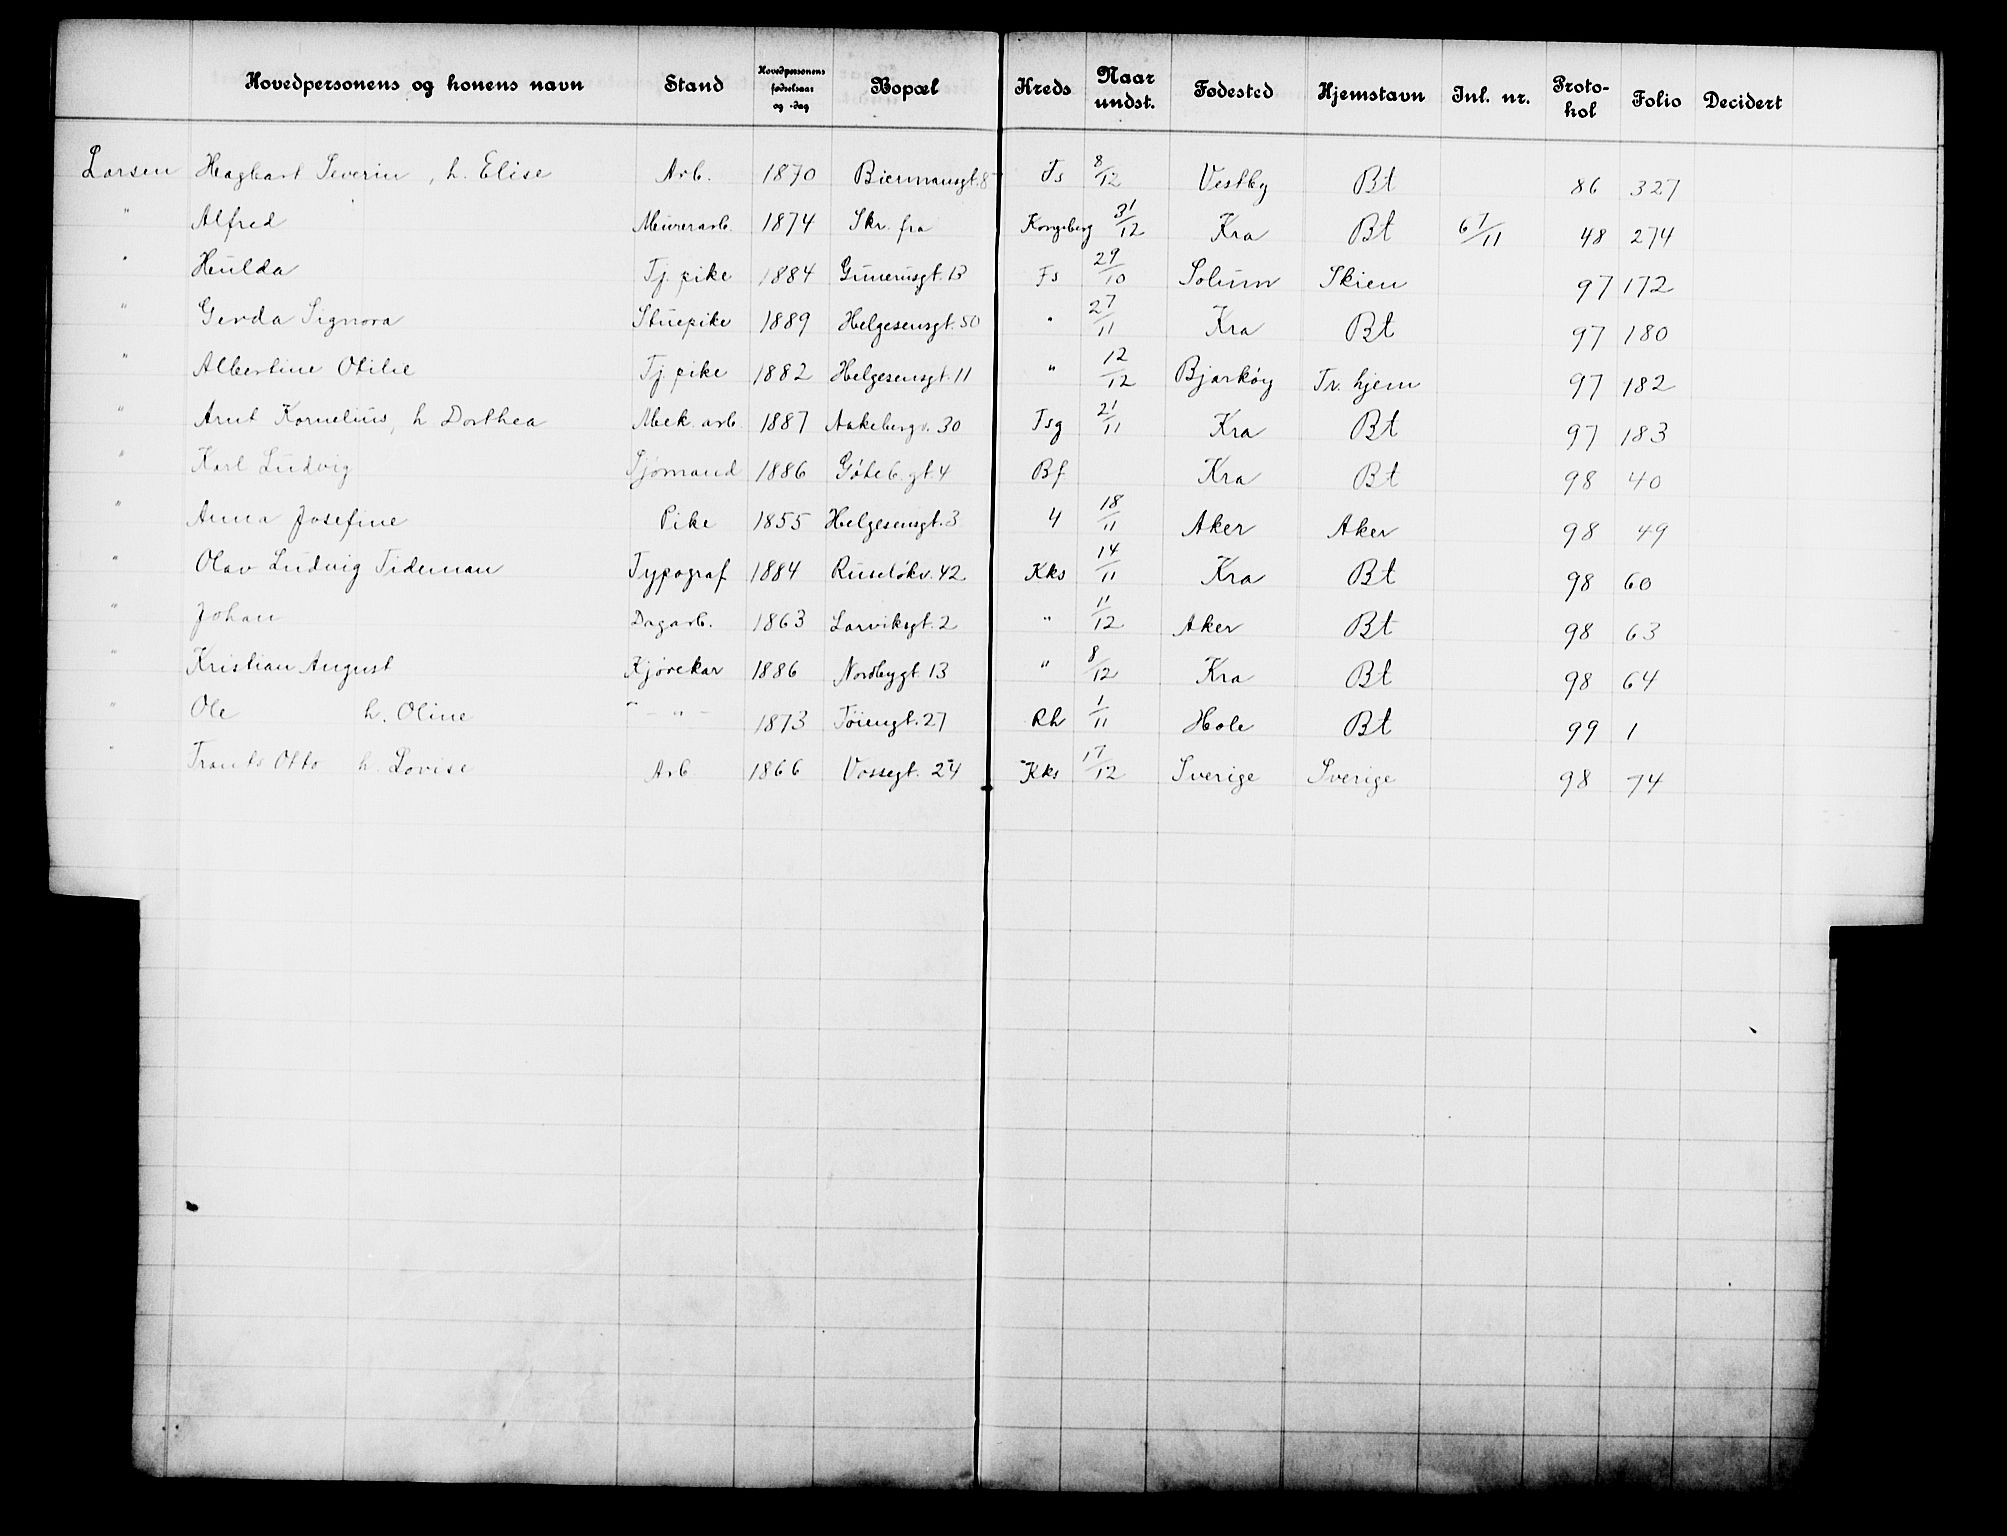 Hovedpersonens og konens navn Stand Hovedpersonens fødselsaar og -dag Bopæl Kreds Naar undst. Fødested Hjemstavn Inl. nr. Proto-kol Folio Decidert
Larsen Hagbart Severin, h. Elise Arb. 1870 Biermansgt. 8 Fs 8/12 Vestby Bt 86 327
" Alfred Murerarb. 1874 Skr. fra Kongsberg 31/12 Kra Bt 67/11 48 274
" Hulda Tj. pike 1884 Gunerusgt. 13 Fs 29/10 Solum Skien 97 172
" Gerda Signora Stuepike 1889 Helgesensgt. 50 " 27/11 Kra Bt 97 180
" Albertine Otilie Tj. pike 1882 Helgesensgt. 11 " 12/12 Bjarköy Tr. hjem 97 182
" Arnt Kornelius, h Dorthea Mek. arb. 1887 Aakebergv. 30 Tsg 21/11 Kra Bt 97 183
" Karl Ludvig Sjømand 1886 Gøteb. gt 4 Bf Kra Bt 98 40
" Anna Josefine Pike 1855 Helgesensgt. 3 4 18/11 Aker Aker 98 49
" Olav Ludvig Tideman Typograf 1884 Ruseløkv. 42 Kks 14/11 Kra Bt 98 60
" Johan Dagarb. 1863 Larviksgt. 2 " 11/12 Aker Bt 98 63
" Kristian August Kjørekar 1886 Nordbygt 13 " 8/12 Kra Bt 98 64
" Ole h. Oline " - " - 1873 Tøiengt. 27 Rh 1/11 Hole Bt 99 1
" Frants Otto h. Lovise Arb 1866 Vossegt. 24 Kks 17/12 Sverige Sverige 98 74